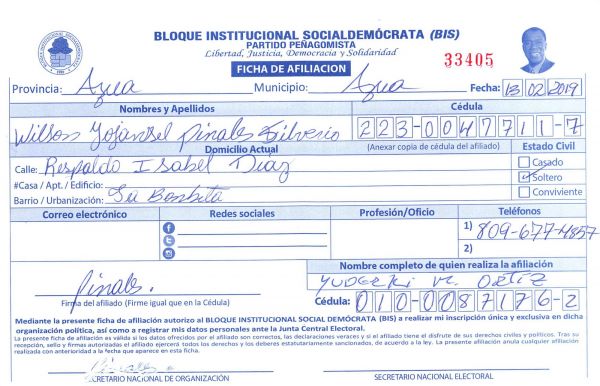 BLOQUE INSTITUCIONAL SOCIALDEMÓCRATA (BIS)
PARTIDO PEÑAGOMISTA
Libertad, Justicia, Democracia y Solidaridad
33405
FICHA DE AFILIACION
Provincia: Azua Municipio: Azua Fecha: 13 02 2019
Nombres y Apellidos Cédula
Wilson Yojansel Pinales Silverio 223-0047711-7
Domicilio Actual (Anexar copia de cédula del afiliado) Estado Civil
Calle: Respaldo Isabel Diaz Casado
#Casa / Apt. / Edificio: Soltero
Barrio / Urbanización: La Bombita Conviviente
Correo electrónico Redes sociales Profesión/Oficio Teléfonos
1) 809-677-4857
2)
Nombre completo de quien realiza la afiliación
Pinales. ORTIZ
Firma del afiliado (Firme igual que en la Cédula) Cédula: 010-0087176-2
Mediante la presente ficha de afiliación autorizo al BLOQUE INSTITUCIONAL SOCIAL DEMÓCRATA (BIS) a realizar mi inscripción única y exclusiva en dicha
organización política, así como a registrar mis datos personales ante la Junta Central Electoral.
La presente ficha de afiliación es válida si los datos ofrecidos por el afiliado son correctos, las declaraciones veraces y si el afiliado tiene el disfrute de sus derechos civiles y políticos. Tras su
recepción, sello y firmas autorizadas el afiliado ejercerá todos los derechos y los deberes estatutariamente sancionados, de acuerdo a la ley. La presente afiliación anula cualquier afiliación
realizada con anterioridad a la fecha que aparece en esta ficha.
SECRETARIO NACIONAL DE ORGANIZACIÓN SECRETARIO NACIONAL ELECTORAL